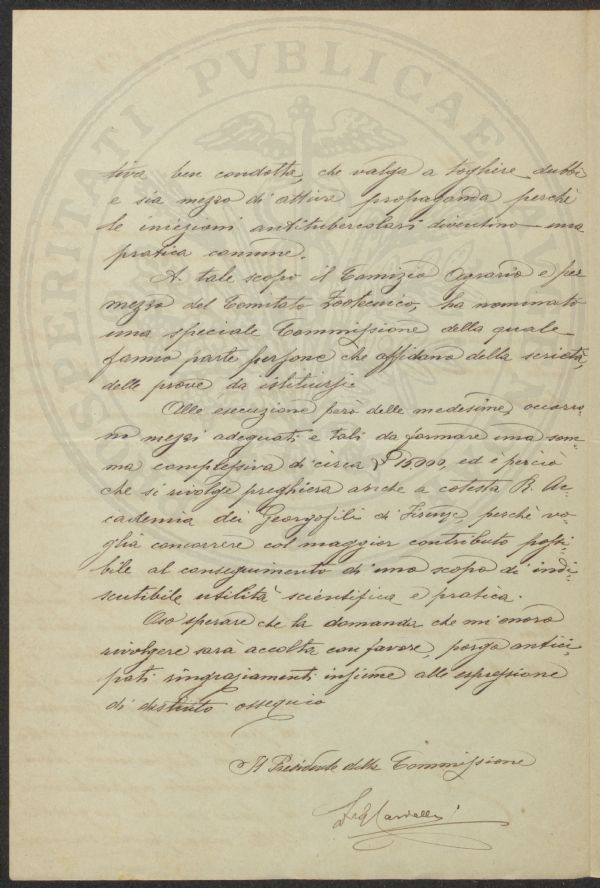 PROSPERITATI PVBLICAE AV
tiva ben condotta, che valga a togliere dubbi
e sia mezzo di attiva propaganda perchè
le iniezioni antitubercolari diventino una
pratica comune.
A tale scopo il Comizio Agrario e per
mezzo del Comitato Zootecnico, ha nominato
una speciale Commissione della quale
fanno parte persone che affidano della serietà
delle prove da istituirsi.
Alla esecuzione però delle medesime, occorro-
no mezzi adeguati e tali da formare una som-
ma complessiva di circa £ 15000, ed è perciò
che si rivolge preghiera anche a cotesta R. Ac-
cademia dei Georgofili di Firenze, perchè vo-
glia concorrere col maggior contributo possi-
bile al conseguimento di uno scopo di indi-
scutibile utilità scientifica e pratica.
Oso sperare che la domanda che mi onoro
rivolgere sarà accolta con favore, porgo antici-
pati ringraziamenti insieme alle espressione
di distinto ossequio
Il Presidente della Commissione